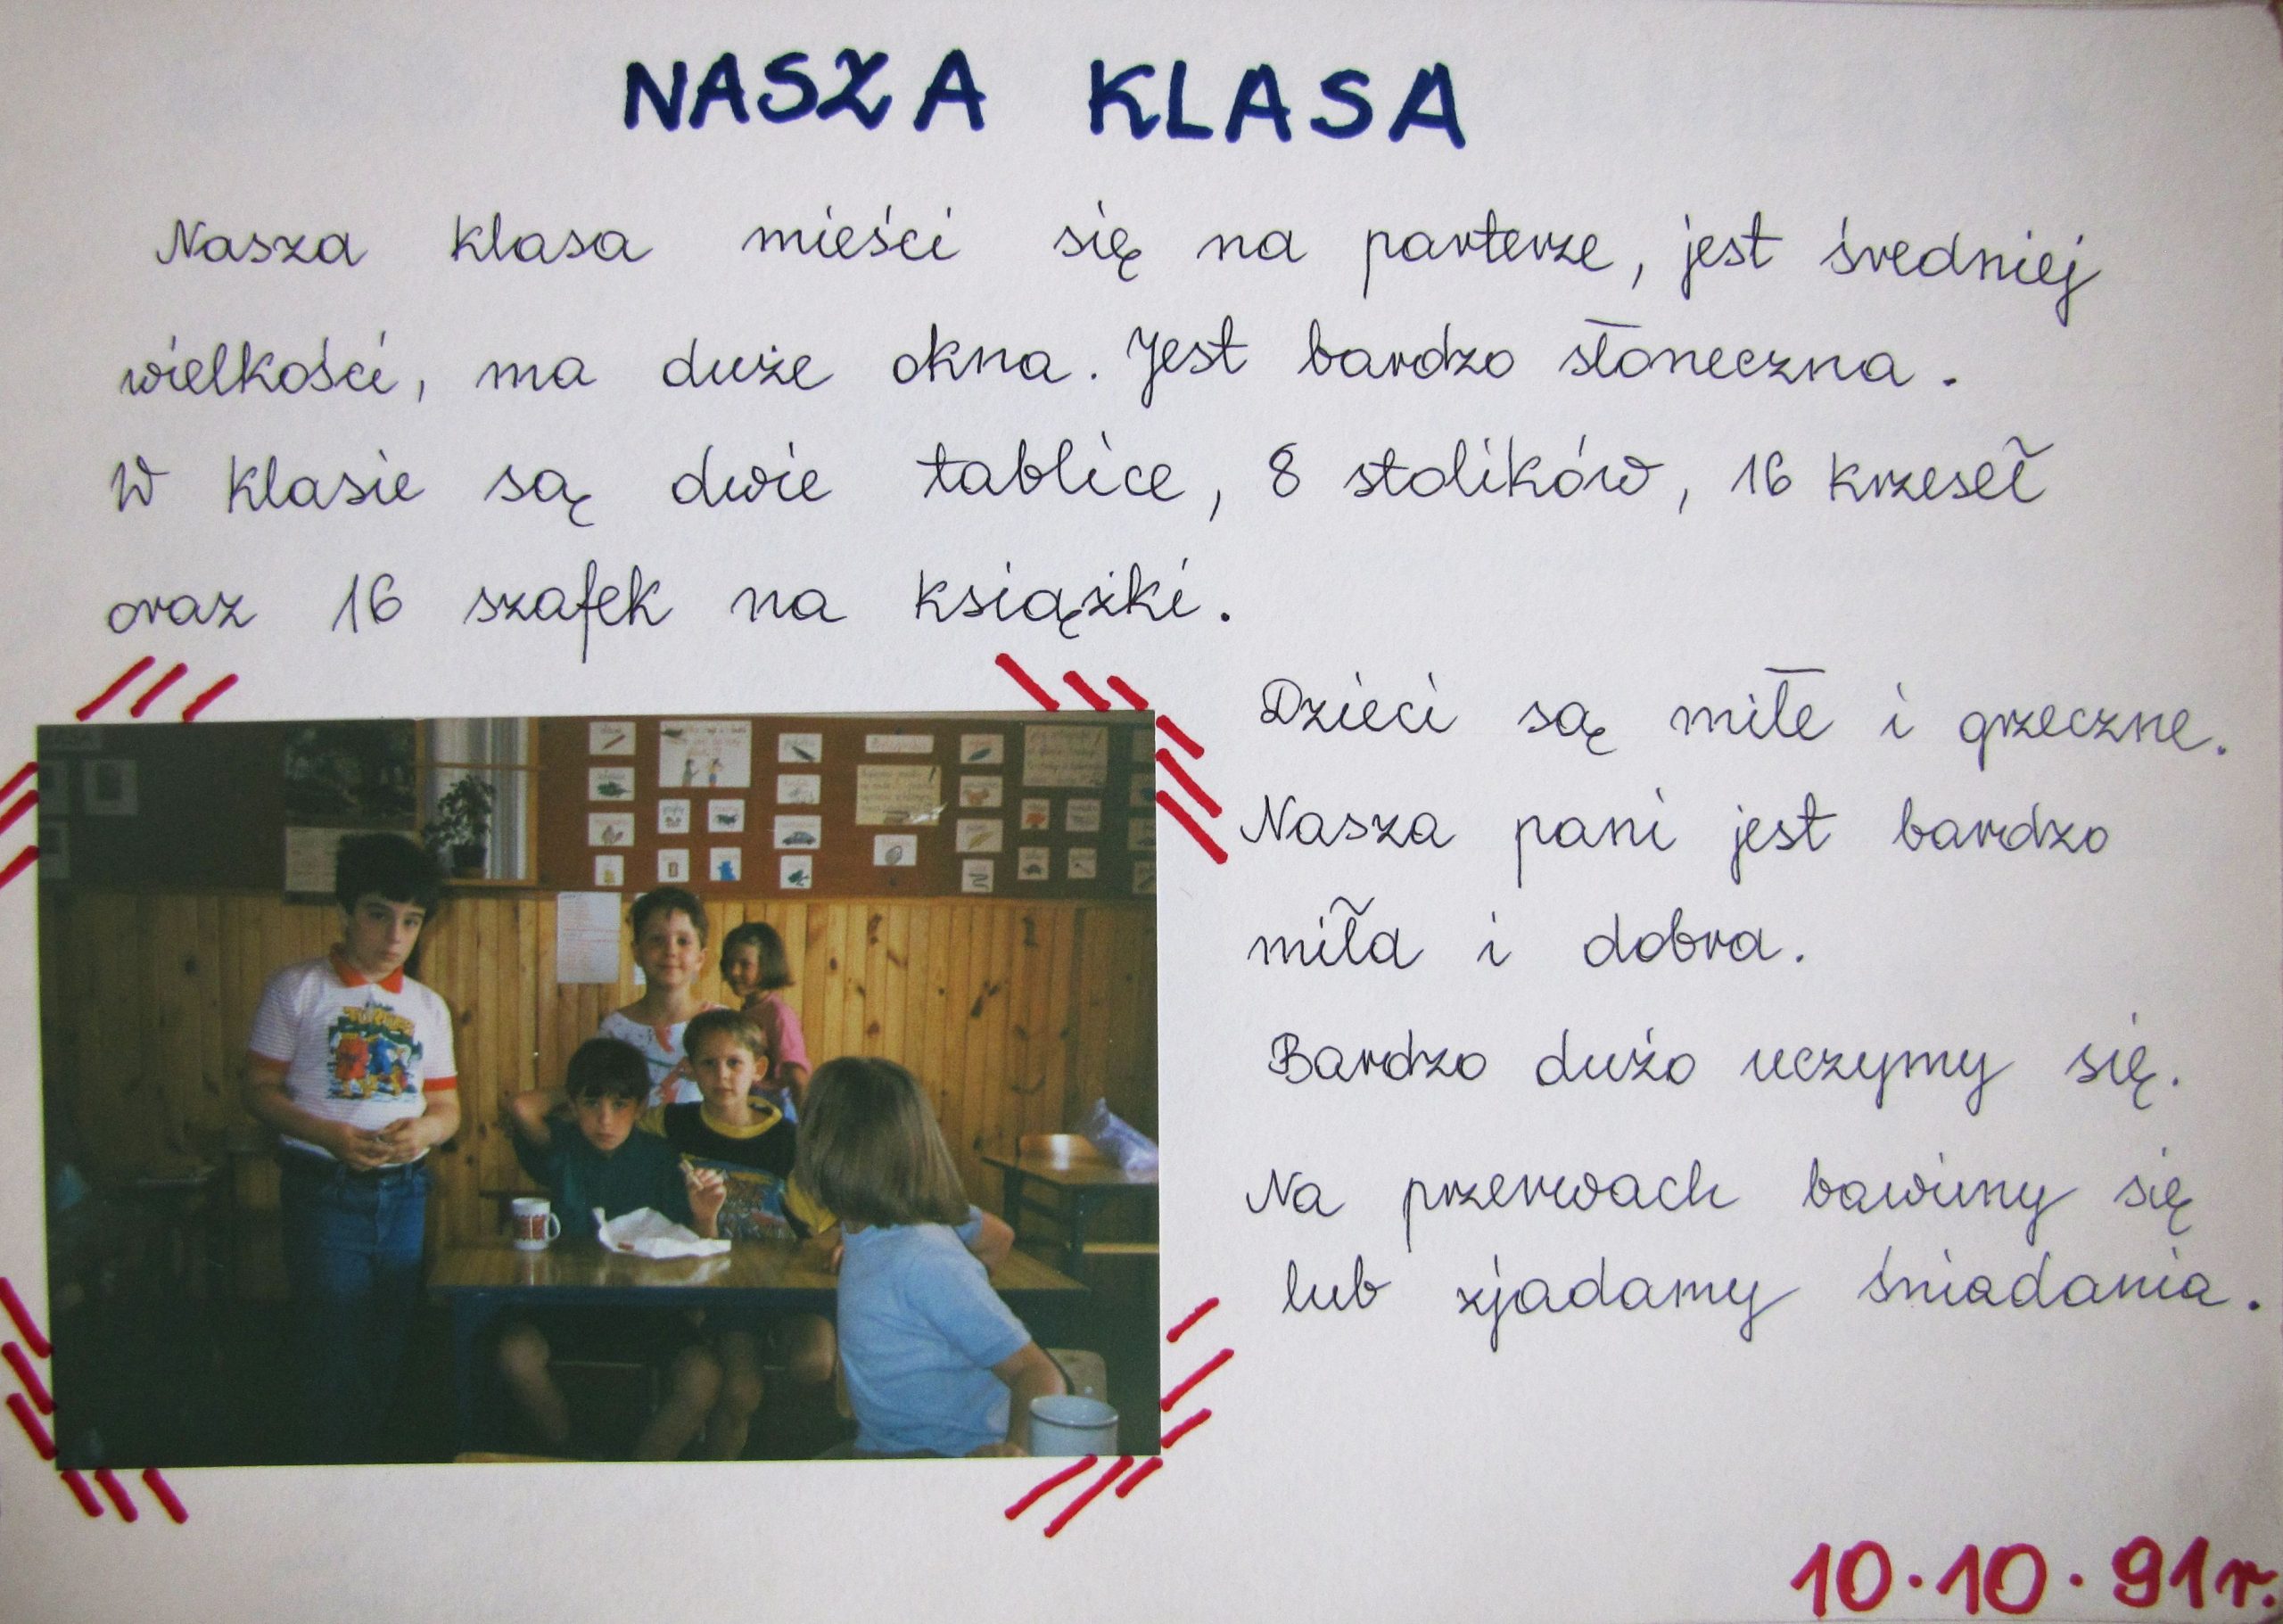 NASZA KLASA
Nasza klasa mieści się na parterze, jest średniej
wielkości, ma duże okna. Jest bardzo słoneczna.
W klasie są dwie tablice, 8 stolików, 16 krzeseł
oraz 16 szafek na książki.
Dzieci są miłe i grzeczne.
Nasza pani jest bardzo
miła i dobra.
Bardzo dużo uczymy się.
Na przerwach bawimy się
lub zjadamy śniadania.
10.10.91r.